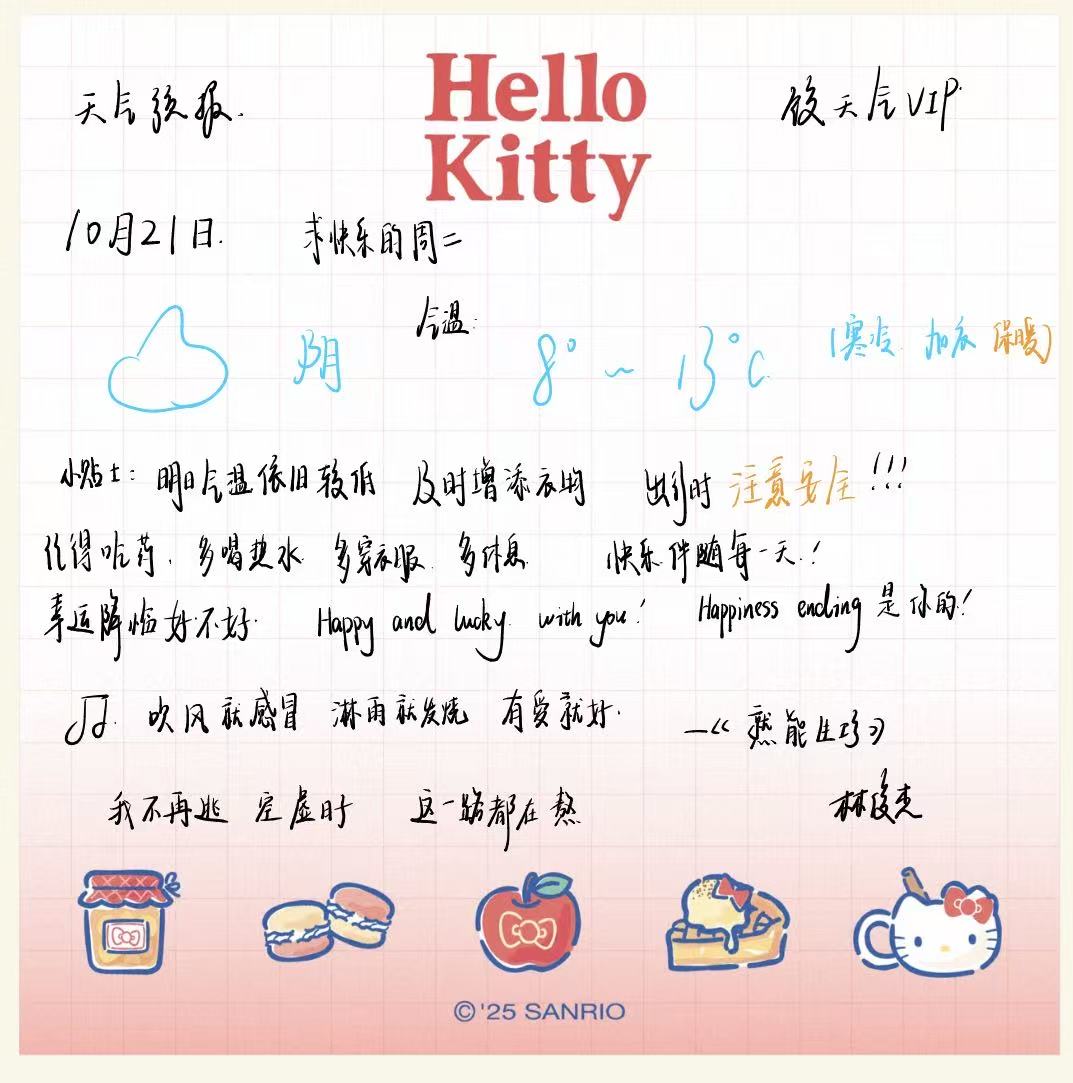 Hello
Kitty
天气预报.
饺天气VIP.
10月21日. 求快乐的周二
气温:
阴 8° ~ 13°C (寒冷 加衣 保暖)
小贴士: 明日气温依旧较低 及时增添衣物 出行时 注意安全!!!
记得吃药, 多喝热水 多穿衣服 多休息 快乐伴随每一天!
幸运降临好不好. Happy and lucky with you! Happiness ending 是你的!
吹风就感冒 淋雨就发烧 有爱就好.
—《熬能生巧》
我不再逃 空虚时 这一路都在熬
林俊杰
©'25 SANRIO